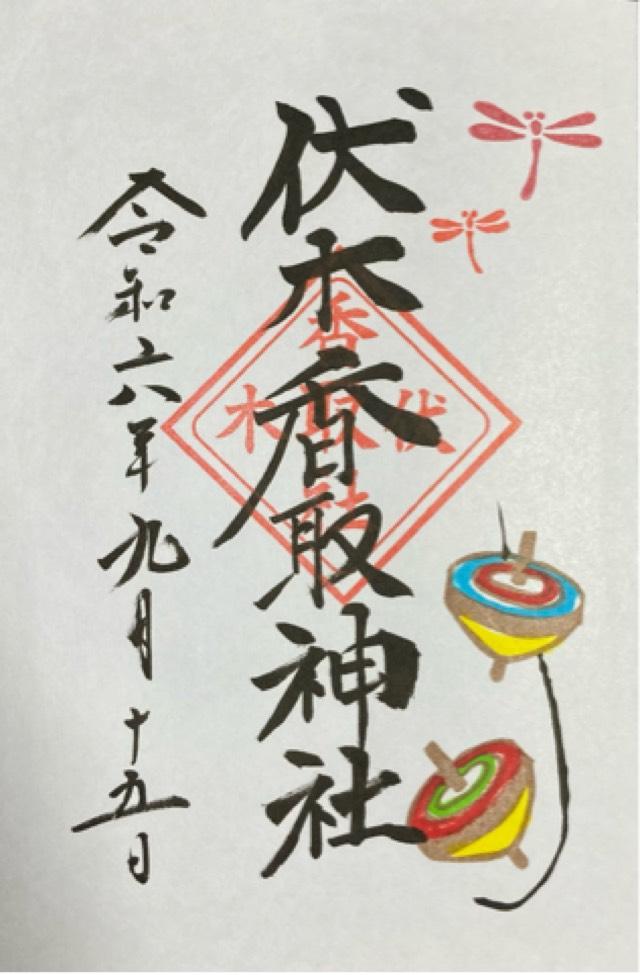 伏木香取神社
香取社
伏木
令和六年九月十五日